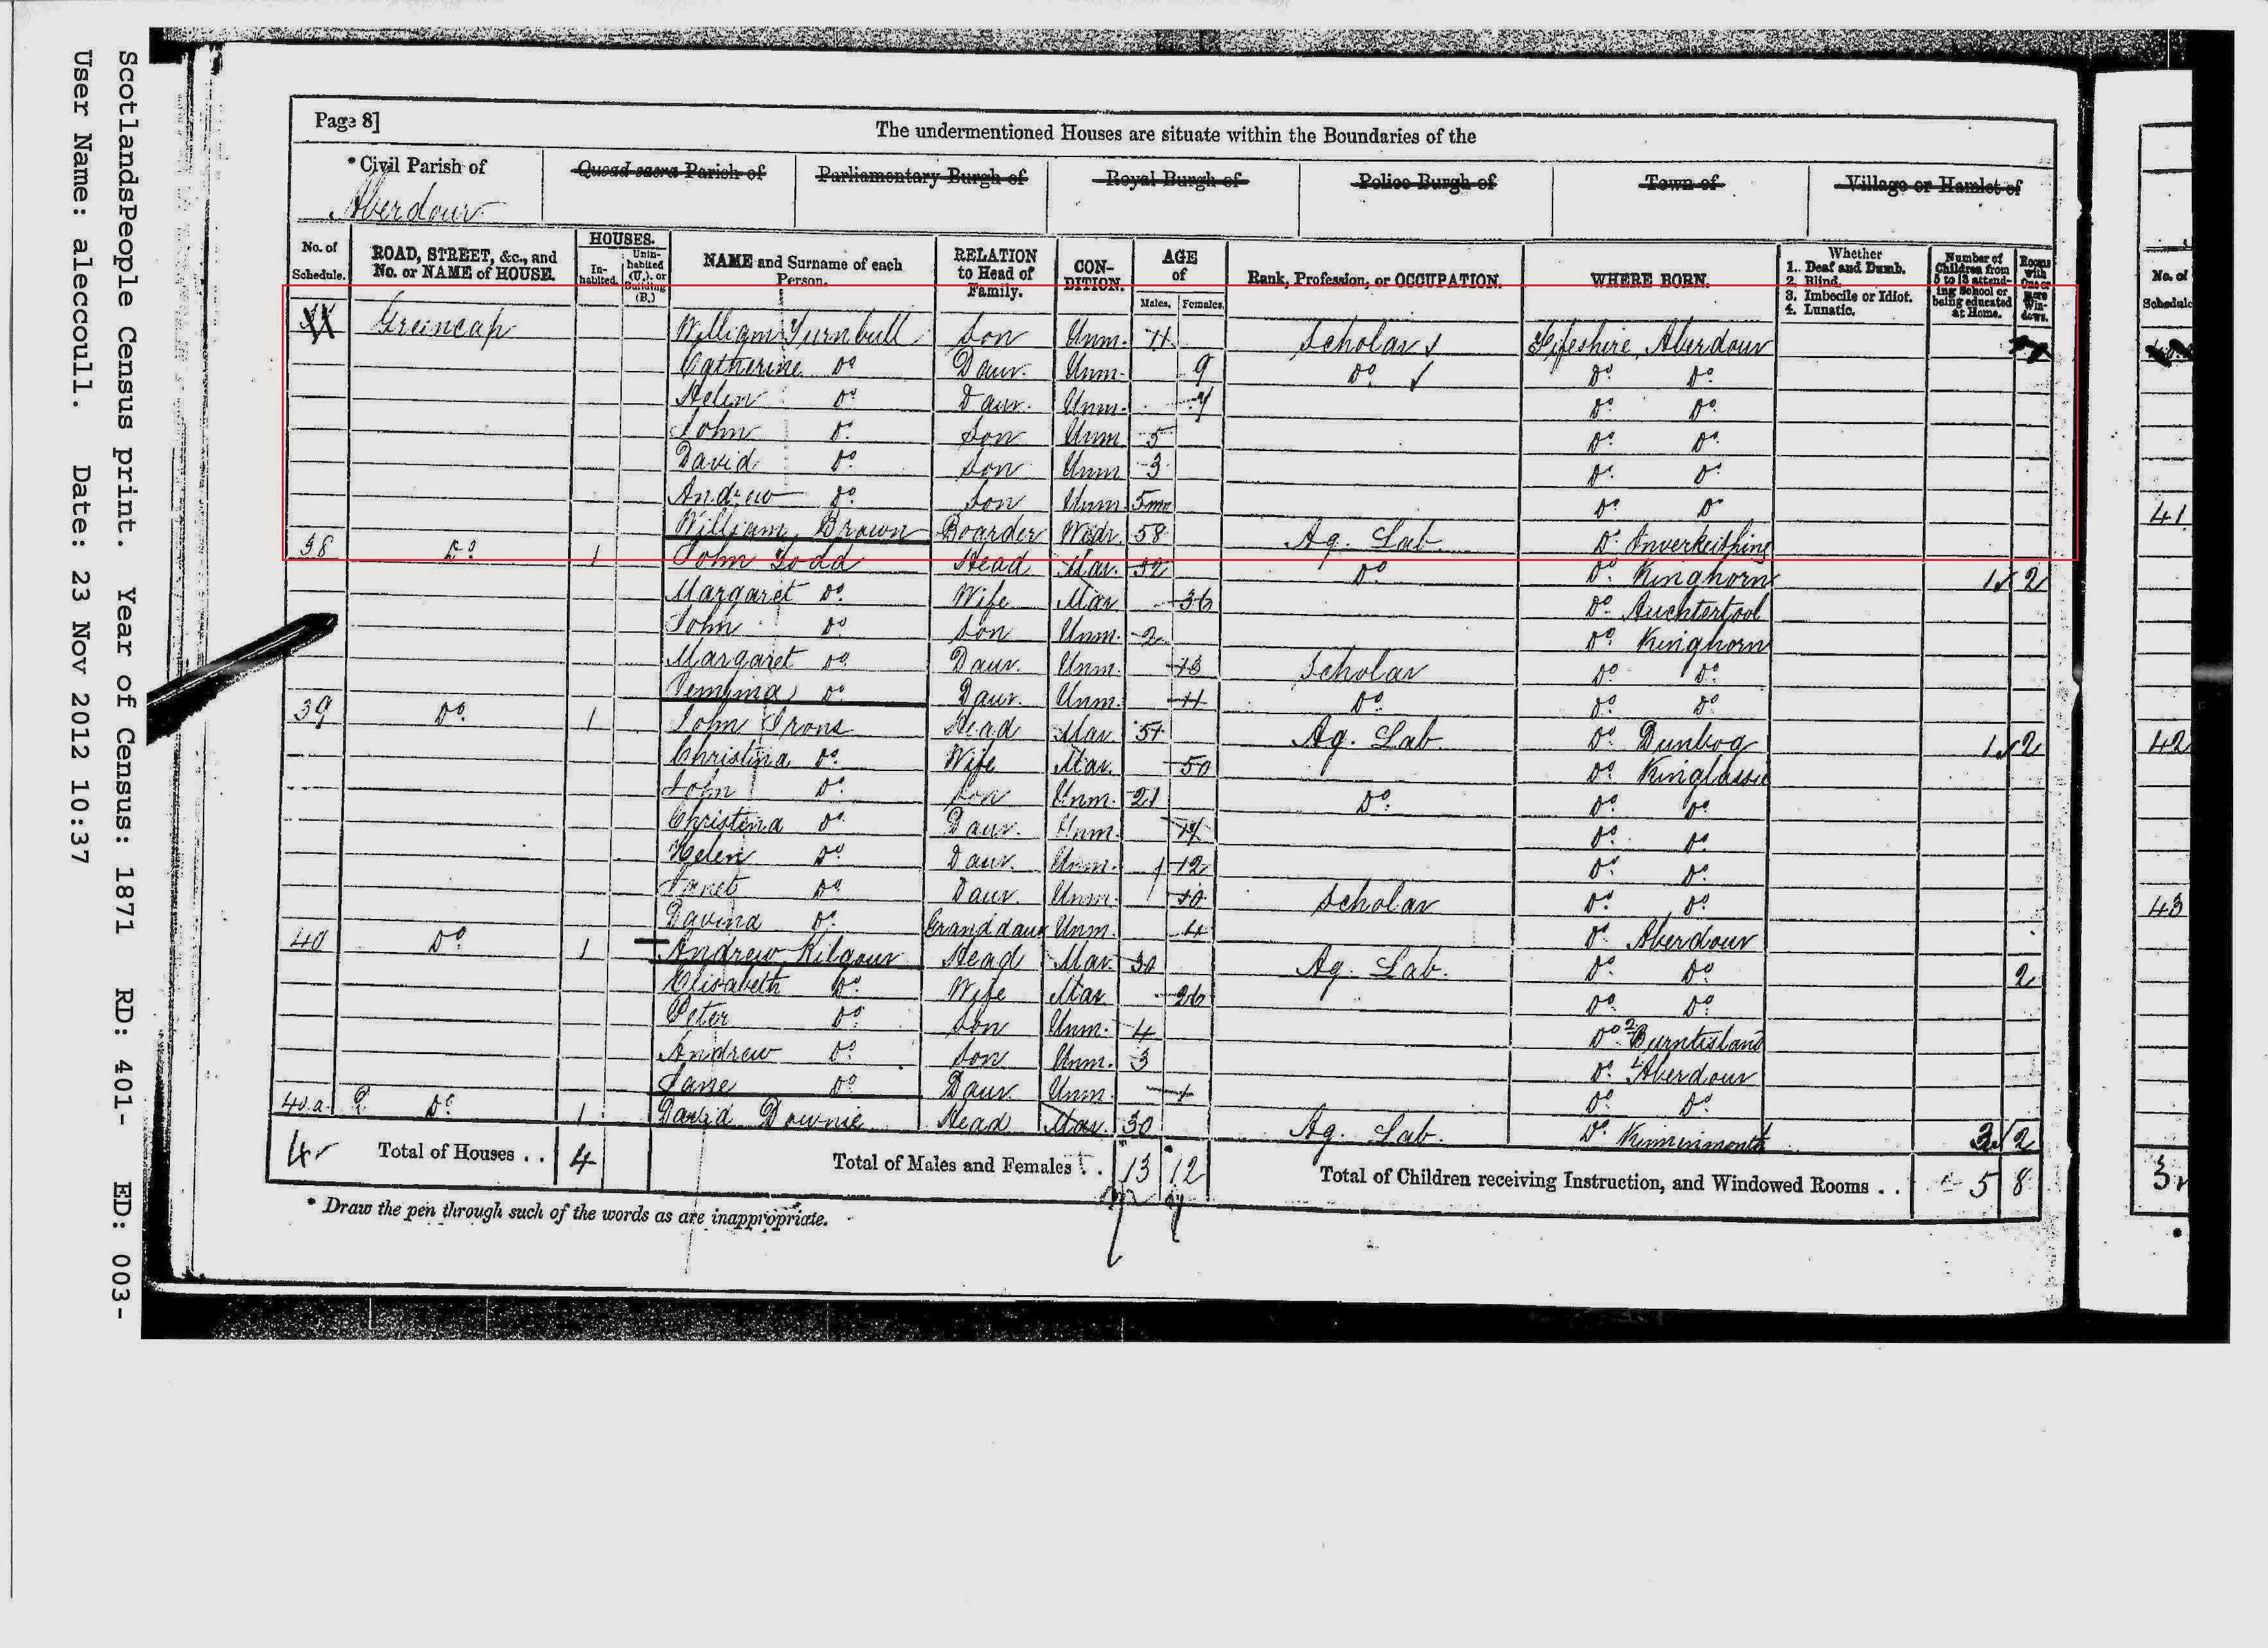 ScotlandsPeople Census print. Year of Census: 1871 RD: 401- ED: 003-
User Name: aleccoull. Date: 23 Nov 2012 10:37
Page 8]
The undermentioned Houses are situate within the Boundaries of the
* Civil Parish of Quoad sacra Parish of Parliamentary Burgh of Royal Burgh of Police Burgh of Town of Village or Hamlet of
Aberdour
No. of Schedule. ROAD, STREET, &c., and No. or NAME of HOUSE. HOUSES. Inhabited. Uninhabited (U.), or Building (B.) NAME and Surname of each Person. RELATION to Head of Family. CONDITION. AGE of Males. Females. Rank, Profession, or OCCUPATION. WHERE BORN. Whether 1. Deaf and Dumb. 2. Blind. 3. Imbecile or Idiot. 4. Lunatic. Number of Children from 5 to 13 attending School or being educated at Home. Rooms with One or more Windows.
William Turnbull Son Unm. 11 Scholar Fifeshire Aberdour
Catherine Do Daur. Unm. 9 Do Do Do
Helen Do Daur. Unm. 7 Do Do
John Do Son Unm 5 Do Do
David Do Son Unm 3 Do Do
Andrew Do Son Unm 5mo Do Do
William Brown Boarder Widr. 58 Ag. Lab. Do Inverkeithing
38 Do 1 John Todd Head Mar. 32 Do Do Kinghorn 1 2
Margaret Do Wife Mar 36 Do Auchtertool
John Do Son Unm. 2 Do Kinghorn
Margaret Do Daur. Unm. 13 Scholar Do Do
Jemima Do Daur. Unm. 11 Do Do Do
39 Do 1 John Irons Head Mar. 51 Ag. Lab. Do Dunbog 1 2
Christina Do Wife Mar. 50 Do Kinglassie
John Do Son Unm. 21 Do Do Do
Christina Do Daur. Unm. Do Do
Helen Do Daur. Unm. 12 Do Do
Janet Do Daur. Unm. 10 Scholar Do Do
Davina Do Grand daur Unm. 4 Do Aberdour
40 Do 1 Andrew Kilgour Head Mar. 30 Ag. Lab. Do Do 2
Elisabeth Do Wife Mar 26 Do Do
Peter Do Son Unm. 4 Do Burntisland
Andrew Do Son Unm. 3 Do Aberdour
Jane Do Daur Unm 1 Do Do
40a Do 1 David Downie Head Mar. 30 Ag. Lab. Do Kinninmonth 3 2
4 Total of Houses . . 4 Total of Males and Females . . 13 12 Total of Children receiving Instruction, and Windowed Rooms . . 5 8
* Draw the pen through such of the words as are inappropriate.
No. of
Schedule
41
42
43
3